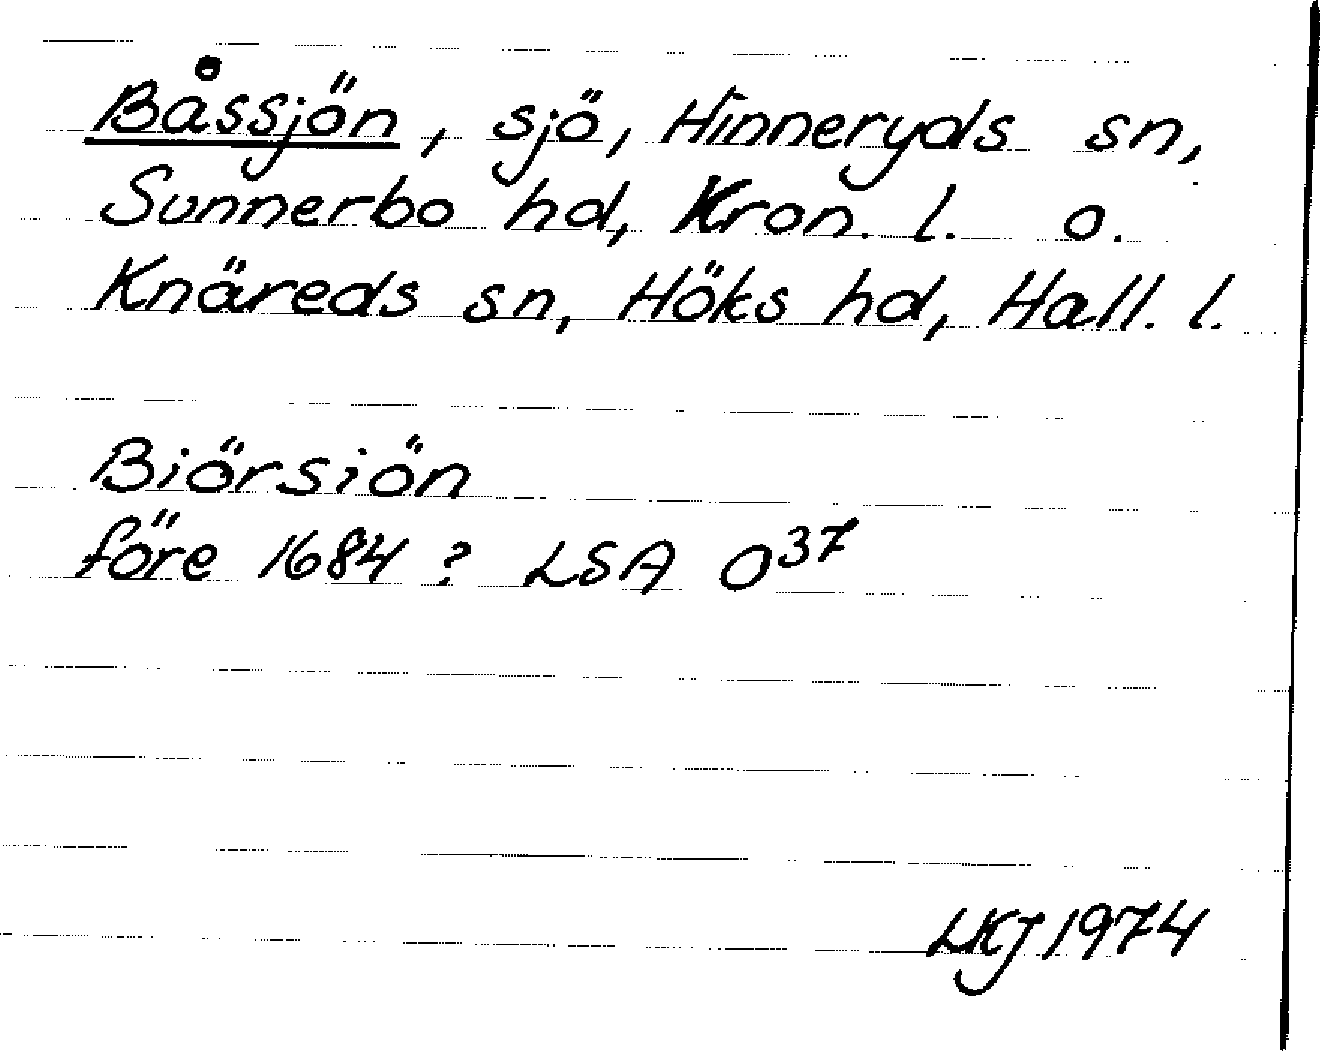 Båssjön, sjö, Hinneryds sn,
Sunnerbo hd, Kron. l. o.
Knäreds sn, Höks hd, Hall. l.
Biörsiön
före 1684? LSA O³⁷
LKJ 1974